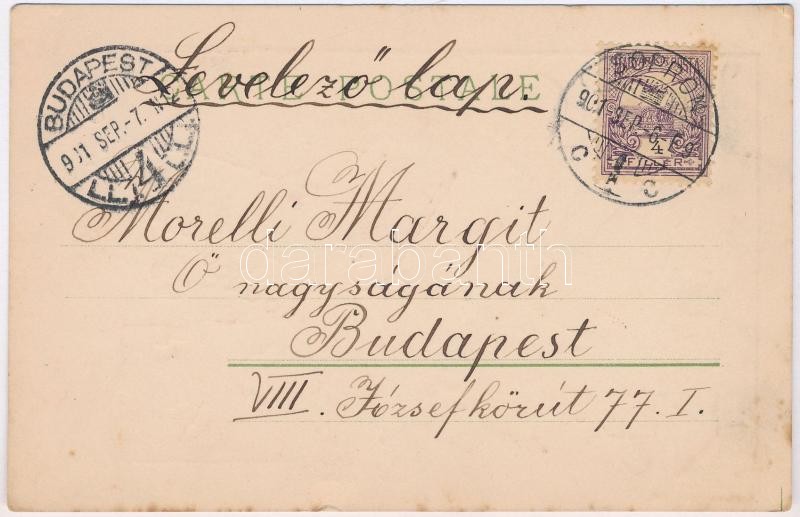 Levelező lap.
CARTE POSTALE
BUDAPEST
901 SEP.-7.
SOPRON
901 SEP-6
C A C
4
FILLÉR
Morelli Margit
Ő nagyságának
Budapest
VIII. Józsefkörút 77. I.
darabanth